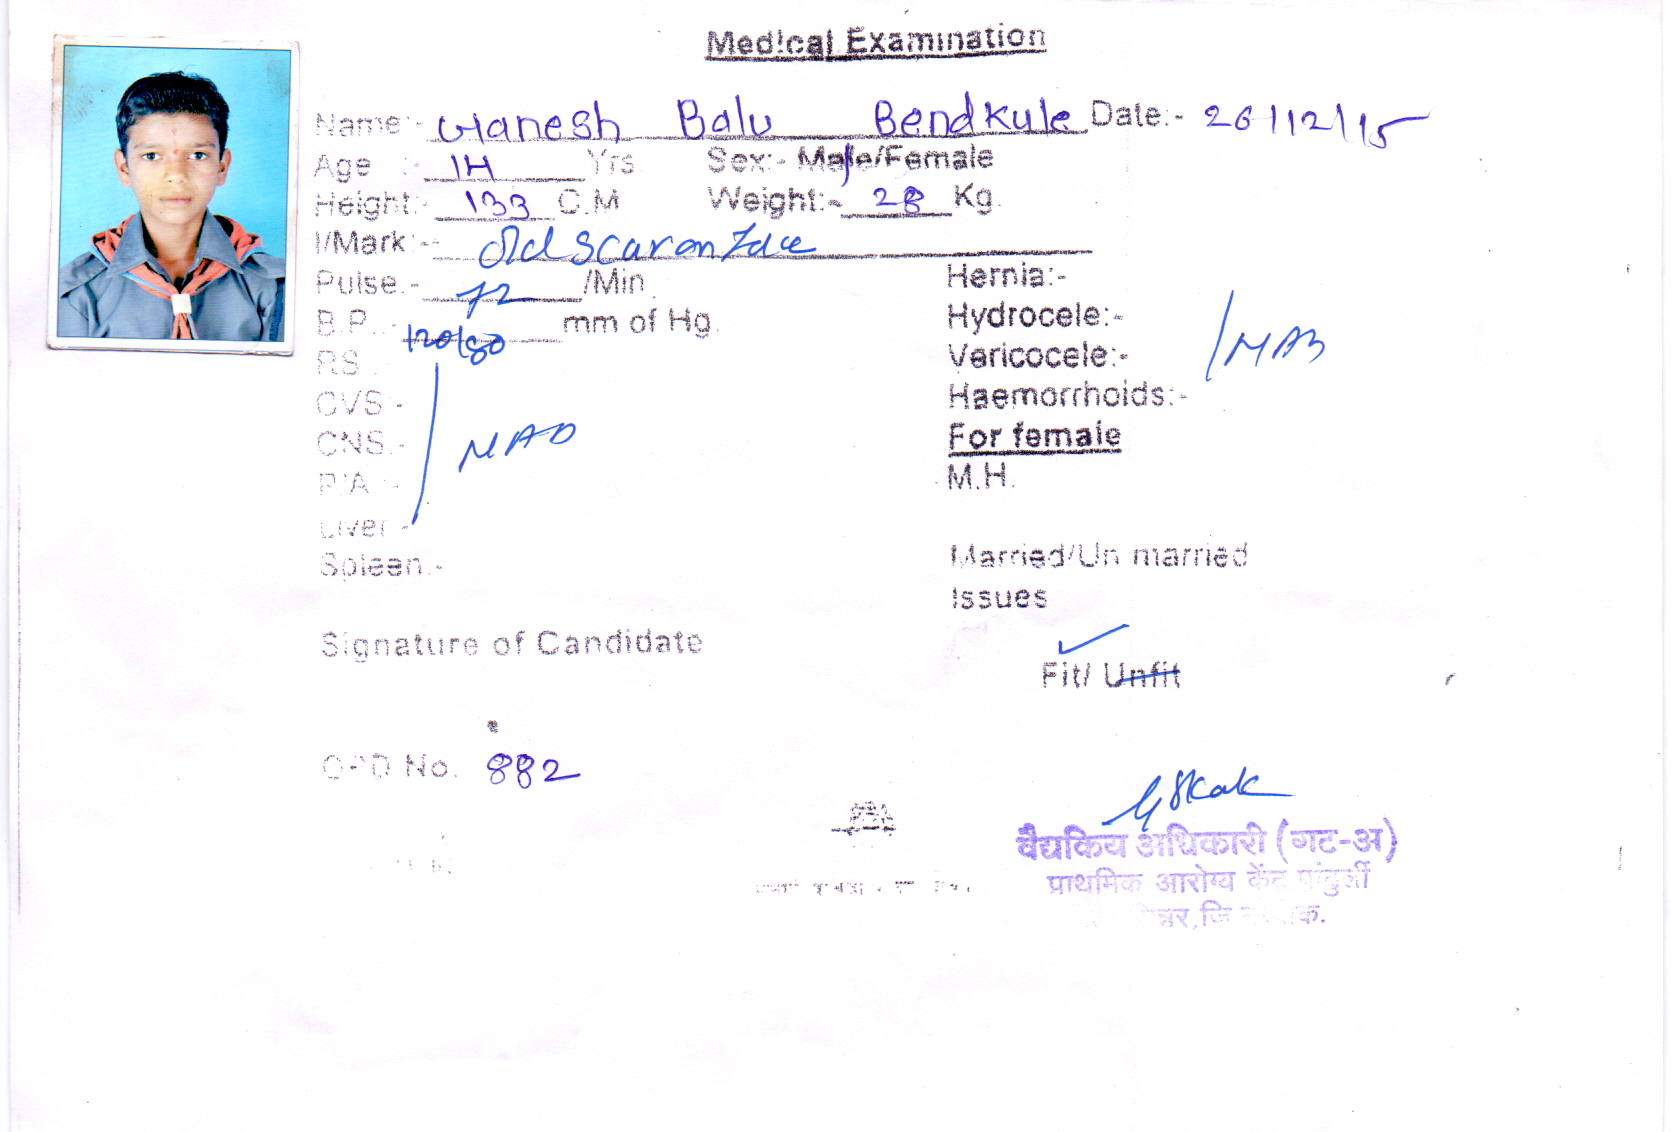 Medical Examination
Name:- Ganesh Balu Bendkule Date:- 26/12/15
Age :- 14 Yrs Sex:- Male/Female
Height:- 133 C.M Weight:- 28 Kg.
I/Mark:- Old Scar on face
Pulse:- 72 /Min Hernia:-
B.P. :- 120/80 mm of Hg. Hydrocele:-
RS : Varicocele:- NAD
CVS:- Haemorrhoids:-
CNS:- NAD For female
P/A :- M.H.
Liver:-
Spleen:- Married/Un married
Issues
Signature of Candidate
Fit/ Unfit
OPD No. 882
वैद्यकिय अधिकारी (गट-अ)
प्राथमिक आरोग्य केंद्र पांढुर्ली